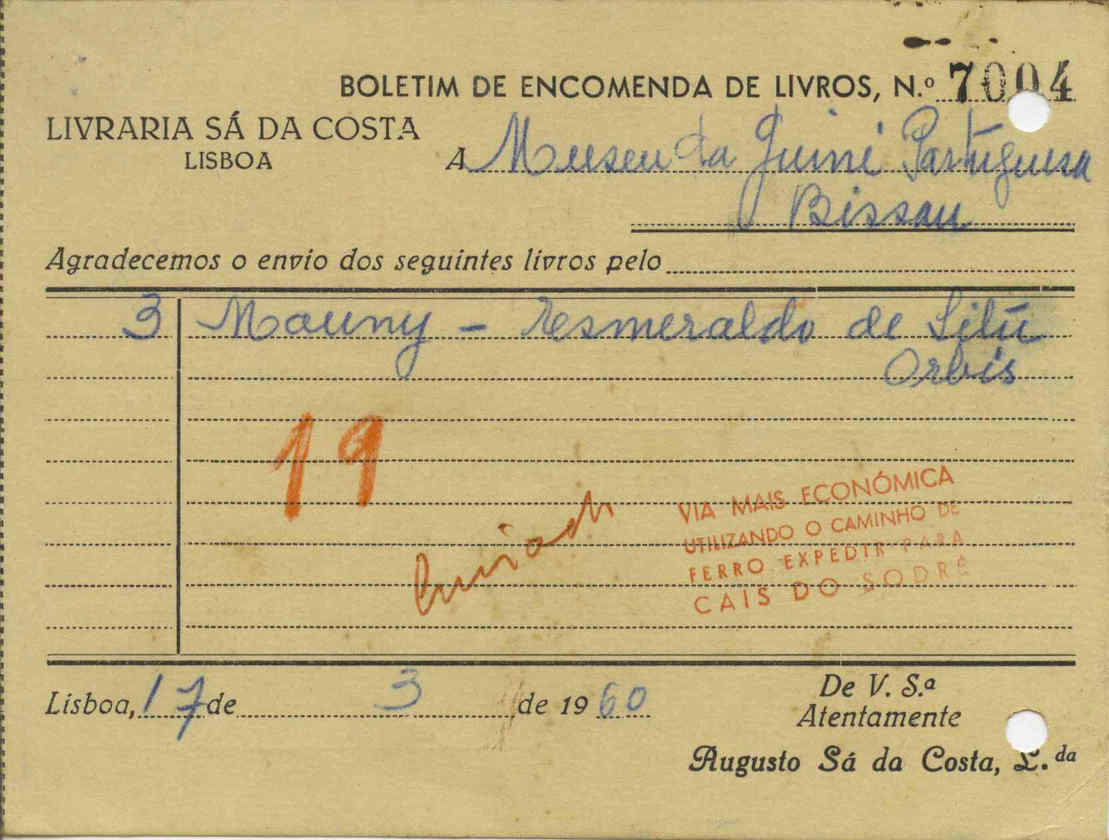 BOLETIM DE ENCOMENDA DE LIVROS, N.º 7004
LIVRARIA SÁ DA COSTA
LISBOA
A Museu da Guiné Portuguesa
Bissau
Agradecemos o envio dos seguintes livros pelo
3 Mauny - Esmeraldo de Sitú
Orbis
19
Enviado
VIA MAIS ECONÓMICA
UTILIZANDO O CAMINHO DE
FERRO EXPEDIR PARA
CAIS DO SODRÉ
Lisboa, 17 de 3 de 1960
De V. S.ª
Atentamente
Augusto Sá da Costa, L.da